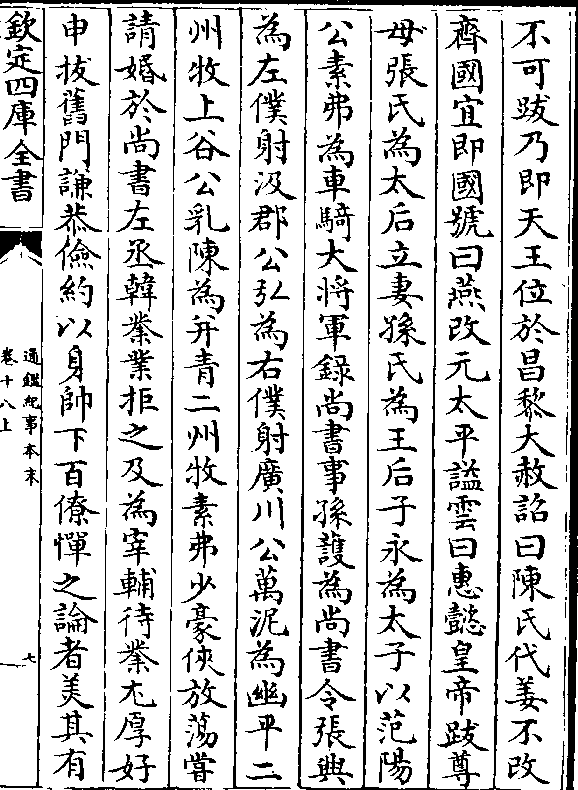 不可跋乃即天王位於昌黎大赦詔曰陳氏代姜不改
齊國宜即國號曰燕改元太平謚雲曰惠懿皇帝跋尊
母張氏為太后立妻孫氏為王后子永為太子以范陽
公素弗為車騎大將軍録尚書事孫護為尚書令張興
為左僕射汲郡公弘為右僕射廣川公萬泥為幽平二
州牧上谷公乳陳為并青二州牧素弗少豪俠放蕩嘗
請婚於尚書左丞韓業業拒之及為宰輔待業尤厚好
申拔舊門謙恭儉約以身帥下百僚憚之論者美其有
欽定四庫全書
通鑑紀事本末
卷十八上
七